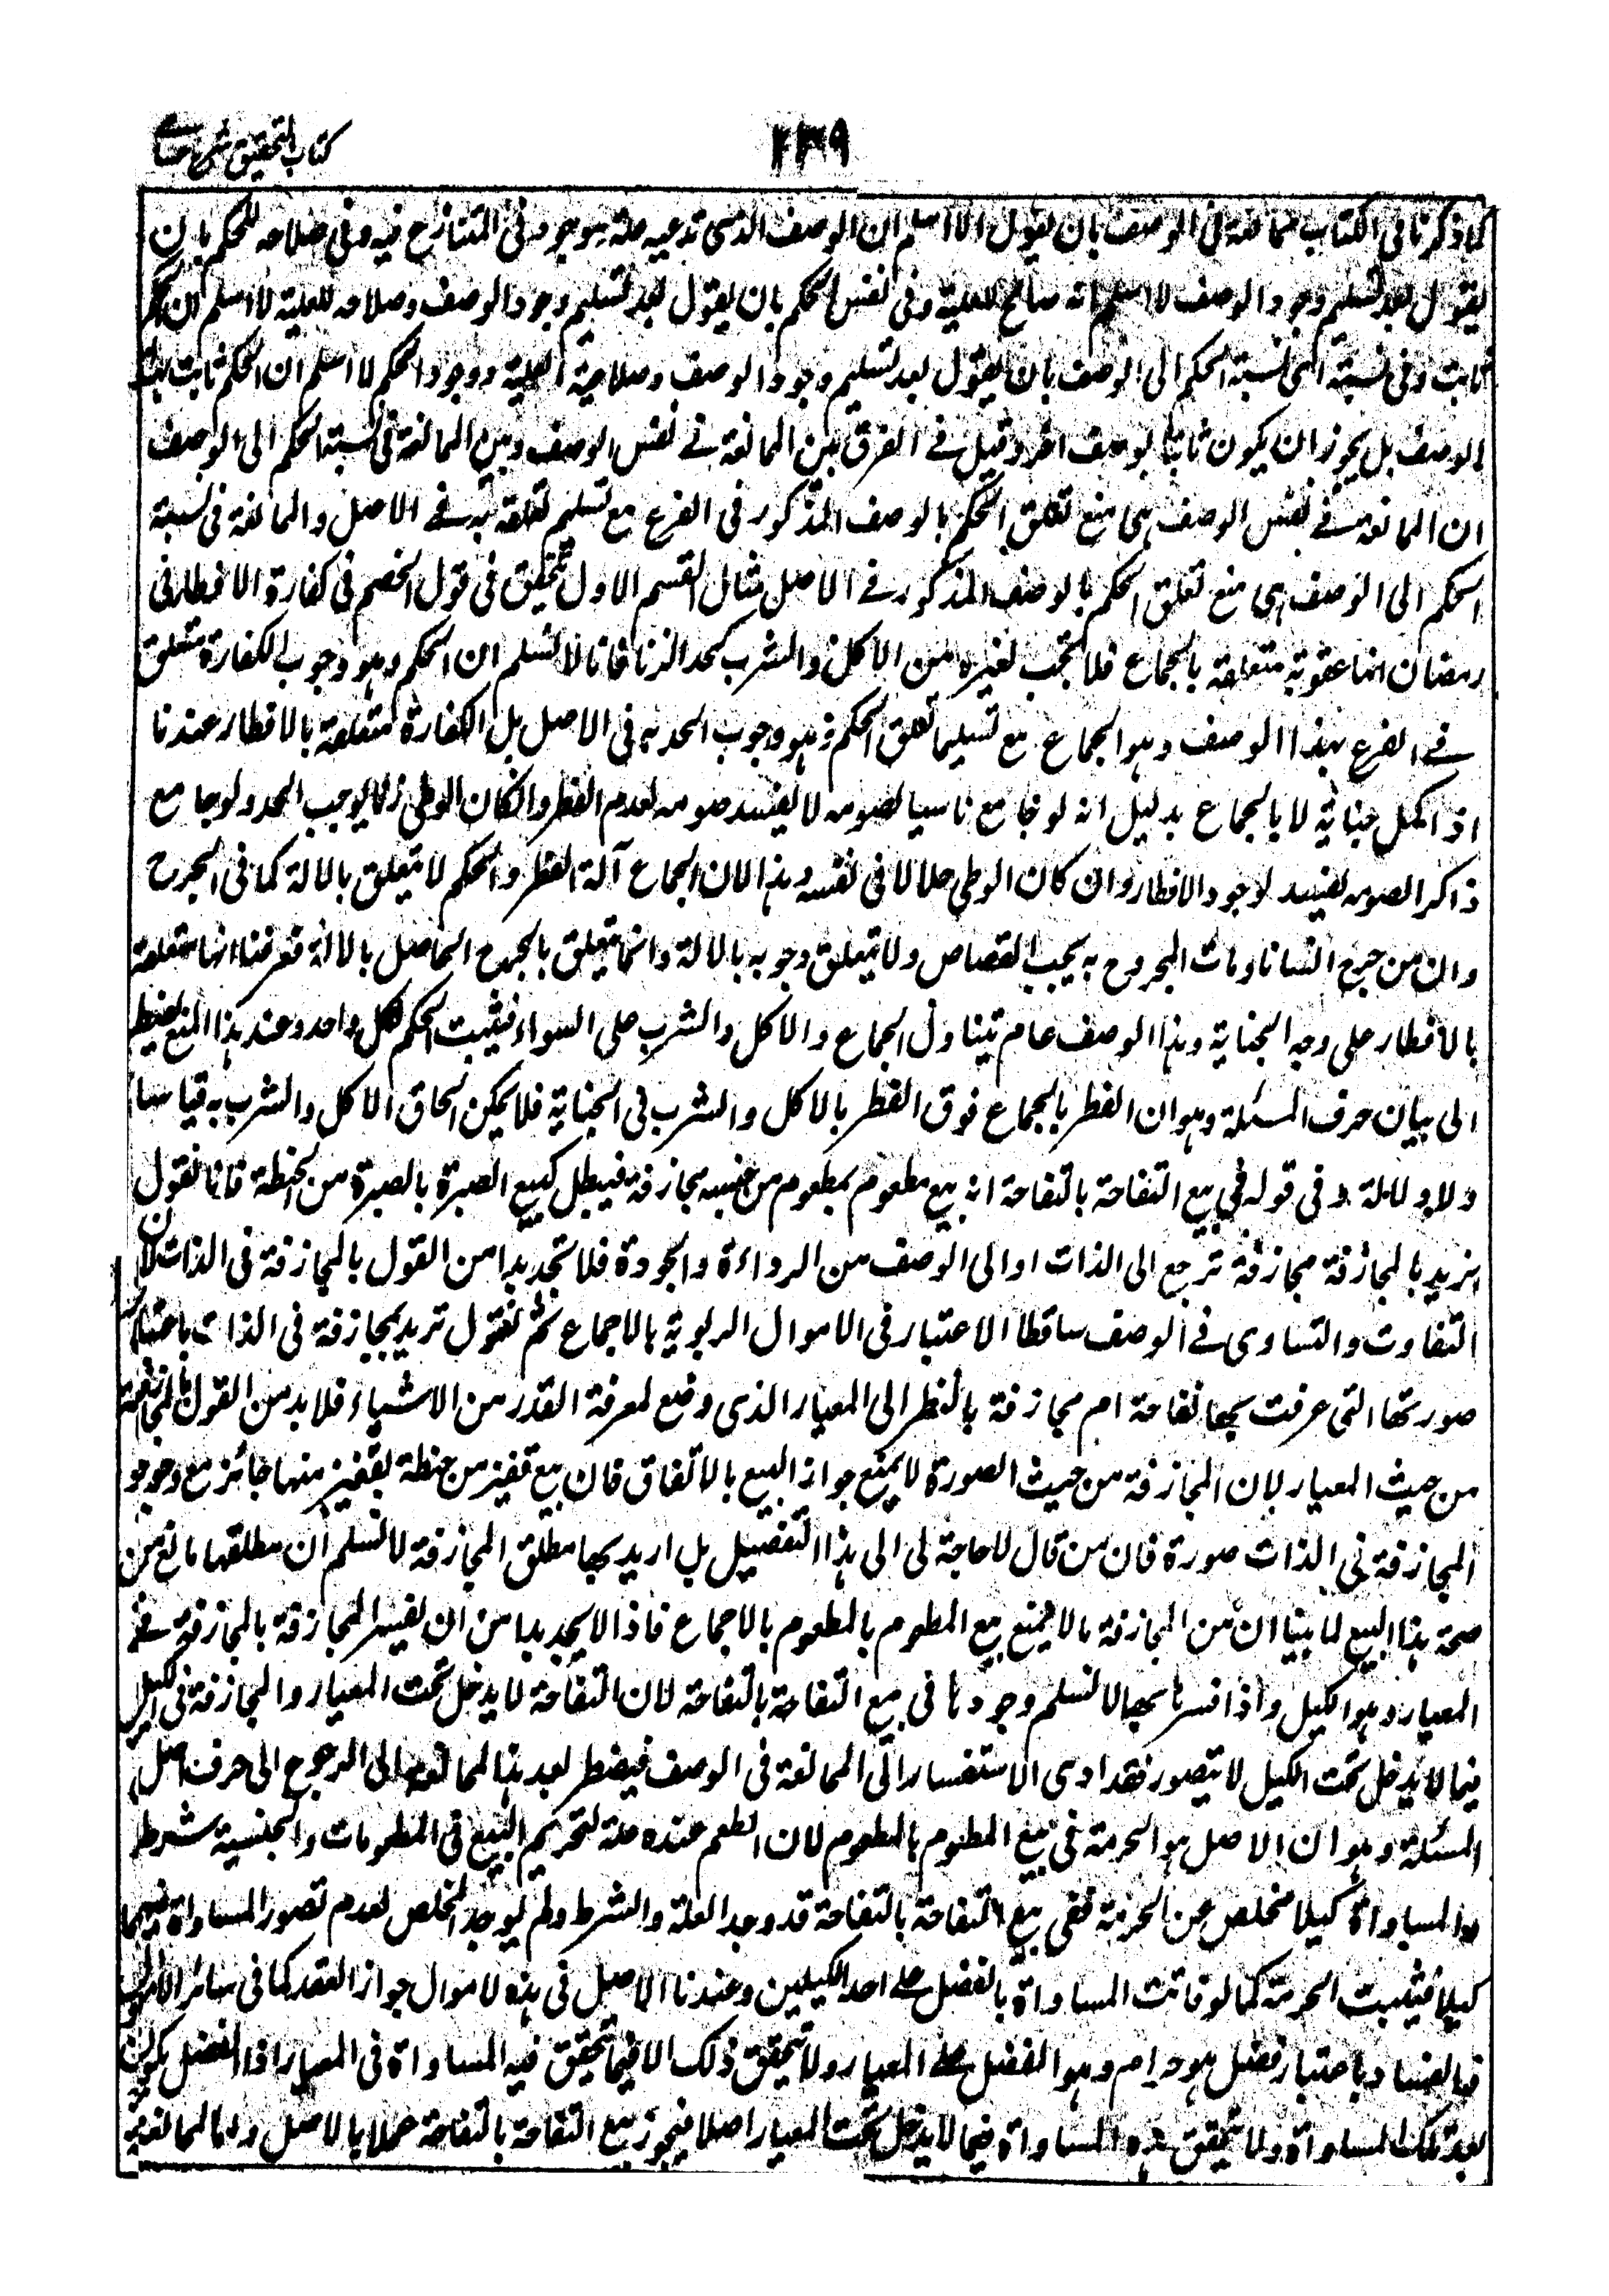 كتاب التحقيق شرح حسامي
٢٣٩
كما ذكرنا في الكتاب ممانعة في الوصف بان يقول لا اسلم ان الوصف الذي تدعيه علة موجود في المتنازع فيه وفي صلاحه للحكم بان
يقول بعد تسليم وجود الوصف لا اسلم انه صالح للعلية وفي نفس الحكم بان يقول بعد تسليم وجود الوصف وصلاحه للعلية لا اسلم ان الحكم
ثابت وفي نسبته اي نسبة الحكم الى الوصف بان يقول بعد تسليم وجود الوصف وصلاحية العلية ووجود الحكم لا اسلم ان الحكم ثابت بهذا
الوصف بل يجوز ان يكون ثابتا بوصف اخر وقيل في الفرق بين الممانعة في نفس الوصف وبين الممانعة في نسبة الحكم الى الوصف
ان الممانعة في نفس الوصف هي منع تعلق الحكم بالوصف المذكور في الفرع مع تسليم تعلقه به في الاصل والممانعة في نسبة
الحكم الى الوصف هي منع تعلق الحكم بالوصف المذكور في الاصل مثال القسم الاول يتحقق في قول الخصم في كفارة الافطار في
رمضان انها عقوبة متعلقة بالجماع فلا تجب لغيره من الاكل والشرب كحد الزنا فانا لا نسلم ان الحكم وهو وجوب الكفارة متعلق
في الفرع بهذا الوصف وهو الجماع مع تسليمنا تعلق الحكم وهو وجوب الحد به في الاصل بل الكفارة متعلقة بالافطار عندنا
اذا كمل جناية لا بالجماع بدليل انه لو جامع ناسيا لصومه لا يفسد صومه لعدم الفطر وان كان الوطي زنا يوجب الحد ولو جامع
ذاكرا لصومه يفسد لوجود الافطار وان كان الوطي حلالا في نفسه وهذا لان الجماع آلة الفطر والحكم لا يتعلق بالآلة كما في الجرح
وان من جرح انسانا ومات المجروح به يجب القصاص ولا يتعلق وجوبه بالآلة وانما يتعلق بالجرح الحاصل بالآلة فعرفنا انها متعلقة
بالافطار على وجه الجناية وهذا الوصف عام يتناول الجماع والاكل والشرب على السواء فيثبت الحكم لكل واحد وعند هذا المنع يضطر
الى بيان حرف المسئلة وهو ان الفطر بالجماع فوق الفطر بالاكل والشرب في الجناية فلا يمكن الحاق الاكل والشرب به قياسا
ولا دلالة وفي قوله في بيع التفاحة بالتفاحة انه بيع مطعوم بمطعوم من جنسه مجازفة فيبطل كبيع الصبرة بالصبرة من الحنطة فانا نقول
اتريد بالمجازفة مجازفة ترجع الى الذات او الى الوصف من الرداءة والجودة فلا تجد بدا من القول بالمجازفة في الذات لان
التفاوت والتساوي في الوصف ساقطا الاعتبار في الاموال الربوية بالاجماع ثم نقول تريد مجازفة في الذات باعتبار
صورتها التي عرفت بها تفاحة ام مجازفة بالنظر الى المعيار الذي وضع لمعرفة القدر من الاشياء فلا بد من القول بالمجازفة
من حيث المعيار لان المجازفة من حيث الصورة لا يمنع جواز البيع بالاتفاق فان بيع قفيز من حنطة بقفيز منها جائز مع وجود
المجازفة في الذات صورة فان من قال لا حاجة لي الى هذا التفصيل بل اريد بها مطلق المجازفة لا نسلم ان مطلقها مانع من
صحة هذا البيع لما بينا ان من المجازفة ما لا يمنع بيع المطعوم بالمطعوم بالاجماع فاذا لا يجد بدا من ان يفسر المجازفة بالمجازفة في
المعيار وهو الكيل واذا فسرها بها لا نسلم وجودها في بيع التفاحة بالتفاحة لان التفاحة لا يدخل تحت المعيار والمجازفة في الكيل
فيما لا يدخل تحت الكيل لا يتصور فقد ادى الاستفسار الى الممانعة في الوصف فيضطر بعد هذا الممانعة الى الرجوع الى حرف اصل
المسئلة وهو ان الاصل هو الحرمة في بيع المطعوم بالمطعوم لان الطعم عنده علة لتحريم البيع في المطعومات والجنسية شرط
والمساواة كيلا مخلص عن الحرمة ففي بيع التفاحة بالتفاحة قد وجد العلة والشرط ولم يوجد المخلص لعدم تصور المساواة فيهما
كيلا فيثبت الحرمة كما لو فاتت المساواة بالفضل على احد الكيلين وعندنا الاصل في هذه الاموال جواز العقد كما في سائر الاموال
فالفساد باعتبار فضل هو حرام وهو الفضل على المعيار ولا يتحقق ذلك الا فيما يتحقق فيه المساواة في المعيار اذ الفضل يكون
بعد تلك المساواة ولا يتحقق هذه المساواة فيما لا يدخل تحت المعيار اصلا فيجوز بيع التفاحة بالتفاحة عملا بالاصل